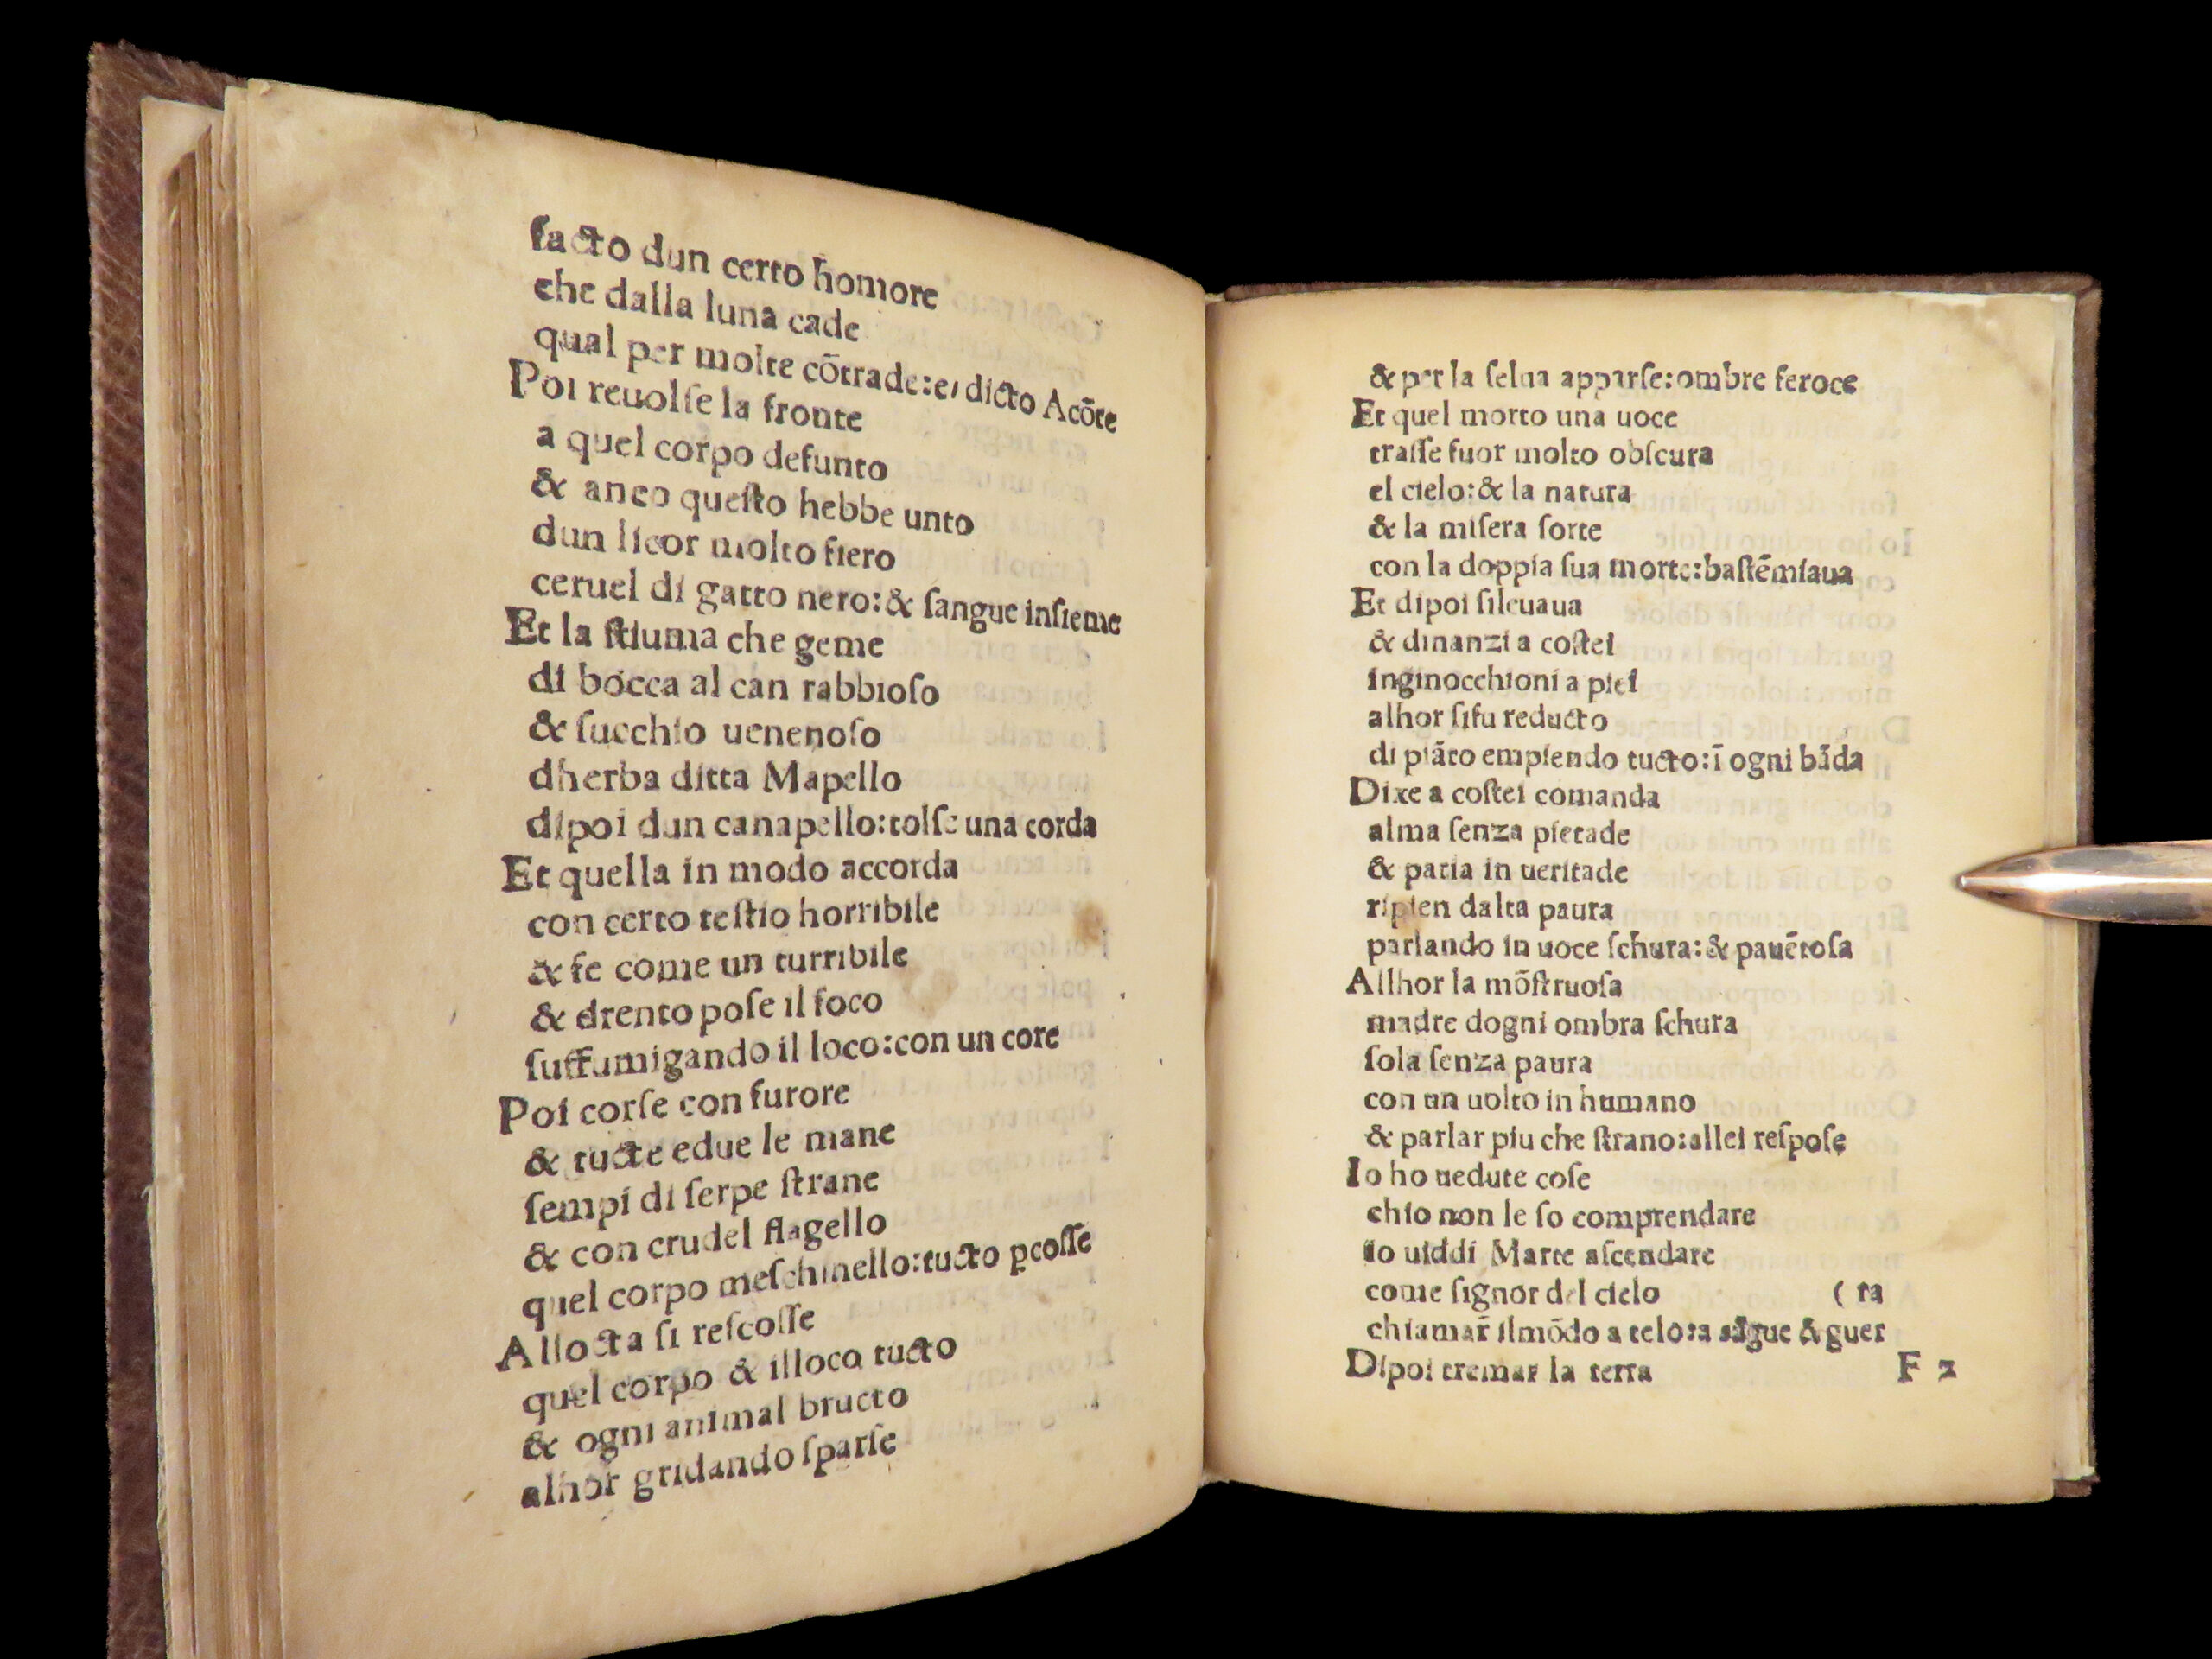 facto dun certo homore
che dalla luna cade
qual per molte cōtrade:e/ dicto Acōte
Poi reuolſe la fronte
a quel corpo defunto
& anco queſto hebbe unto
dun licor molto fiero
ceruel di gatto nero:& ſangue inſieme
Et la ſtiuma che geme
di bocca al can rabbioſo
& ſucchio uenenoſo
dherba ditta Mapello
dipoi dun canapello:tolſe una corda
Et quella in modo accorda
con certo teſtio horribile
& fe come un turribile
& drento poſe il foco
ſuffumigando il loco:con un core
Poi corſe con furore
& tucte edue le mane
ſempi di ſerpe ſtrane
& con crudel flagello
quel corpo meſchinello:tucto ꝑcoſſe
Allocta ſi reſcoſſe
quel corpo & illoco tucto
& ogni animal bructo
alhor gridando ſparſe
& per la ſelua apparſe:ombre feroce
Et quel morto una uoce
traſſe fuor molto obſcura
el cielo:& la natura
& la miſera ſorte
con la doppia ſua morte:baſtēmiaua
Et dipoi ſileuaua
& dinanzi a coſtei
inginocchioni a piei
alhor ſifu reducto
di piāto empiendo tucto:ī ogni bāda
Dixe a coſtei comanda
alma ſenza pietade
& patia in ueritade
ripien dalta paura
parlando in uoce ſchura:& pauētoſa
Allhor la mōſtruoſa
madre dogni ombra ſchura
ſola ſenza paura
con un uolto in humano
& parlar piu che ſtrano:allei reſpoſe
Io ho uedute coſe
chio non le ſo comprendare
io uiddi Marte aſcendare
come ſignor del cielo ( ra
chiamar̄ ilmōdo a telo:a sāgue & guer
Dipoi tremar la terra F 2